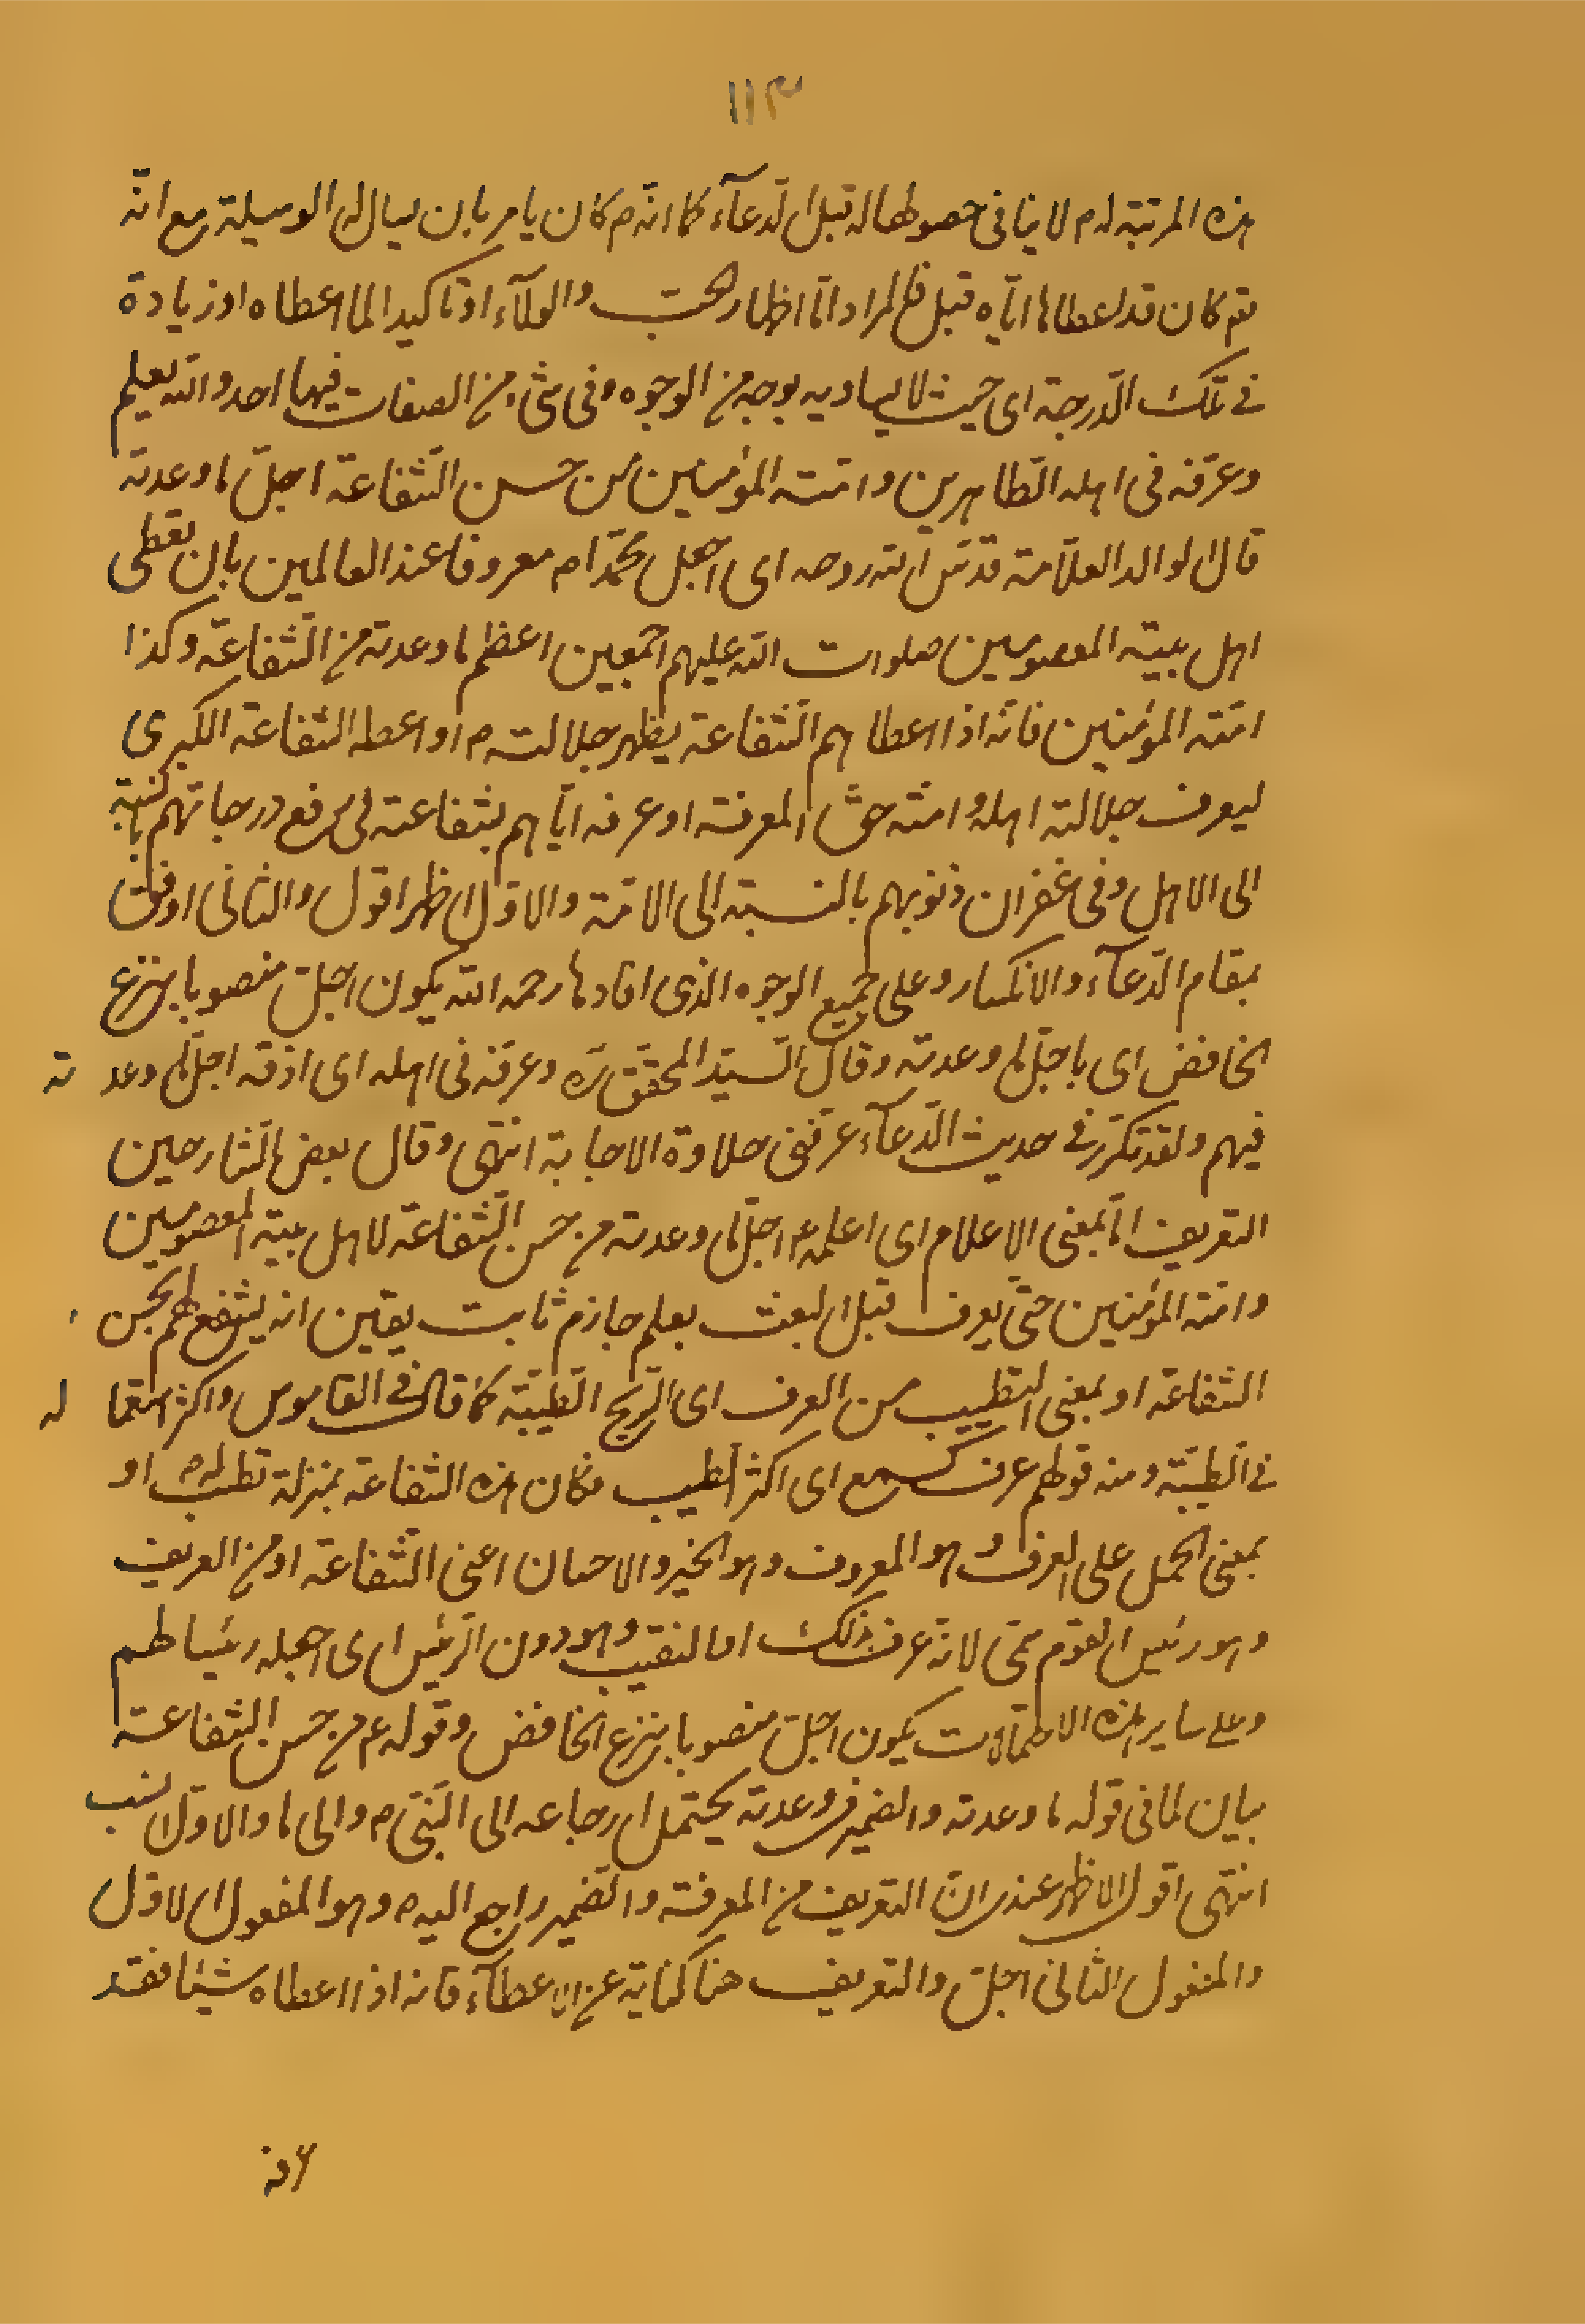 ١١٣
هذه المرتبة له م لا ينافى حصولها له قبل الدعآء كما انه م كان يامر بان يسال له الوسيلة مع انّه
تع كان قد اعطاها ايّاه قبل فالمراد امّا اظهار الحب والولآء او تاكيدا لما اعطاه او زيادة
فى تلك الدّرجة اى حيث لا يساويه بوجه من الوجوه وفى شئ من الصفات فيها احد والله يعلم
وعرّفه فى اهله الطّاهرين وامّته المؤمنين من حسن الشّفاعة اجلّ ما وعدته
قال الوالد العلّامة قدّس الله روحه اى اجعل محمّدا م معروفا عند العالمين بان تعطى
اهل بيته المعصومين صلوات الله عليهم اجمعين اعظم ما وعدته من الشّفاعة وكذا
امّته المؤمنين فانّه اذا اعطاهم الشّفاعة يظهر جلالته م او اعطه الشّفاعة الكبرى
ليعرف جلالته اهله وامّته حقّ المعرفة او عرفه ايّاهم بشفاعته فى رفع درجاتهم بالنسبة
الى الاهل وفى غفران ذنوبهم بالنسبة الى الامّة والاوّل اظهر اقول والثانى اوفق
بمقام الدّعآء والانكسار وعلى جميع الوجوه الذى افادها رحمه الله يكون اجلّ منصوبا بنزع
الخافض اى باجلّ ما وعدته وقال السيّد المحقّق ره وعرّفه فى اهله اى اذقه اجلّ ما وعدته
فيهم ولقد تكرّر فى حديث الدّعآء عرّفنى حلاوة الاجابة انتهى وقال بعض الشّارحين
التعريف امّا بمعنى الاعلام اى اعلمه م اجلّ ما وعدته من حسن الشّفاعة لاهل بيته المعصومين
وامّته المؤمنين حتّى يعرف قبل البعث بعلم جازم ثابت يقين انه يشفع لهم بحسن
الشّفاعة او بمعنى التطييب من العرف اى الرّيح الطّيّبة كما قال فى القاموس واكثر استعماله
فى الطّيّبة ومنه قولهم عرف كسمع اى اكثر الطيب فكان هذه الشّفاعة بمنزلة تطيب له م او
بمعنى الحمل على العرف وهو المعروف وهو الخير والاحسان اعنى الشّفاعة او من العريف
وهو رئيس القوم سمّى لانّه عرف بذلك اما النقيب وهو دون الرّئيس اى اجعله رئيسا لهم
وعلى ساير هذه الاحتمالات يكون اجلّ منصوبا بنزع الخافض وقوله ع من حسن الشّفاعة
بيان لما فى قوله ما وعدته والضمير فى وعدته يحتمل ارجاعه الى النّبىّ م والى ما والاوّل انسب
انتهى اقول الاظهر عندى انّ التعريف من المعرفة والضّمير راجع اليه م وهو المفعول الاوّل
والمفعول الثانى اجلّ والتعريف هنا كناية عن الاعطآء فانه اذا اعطاه شيئا فقد